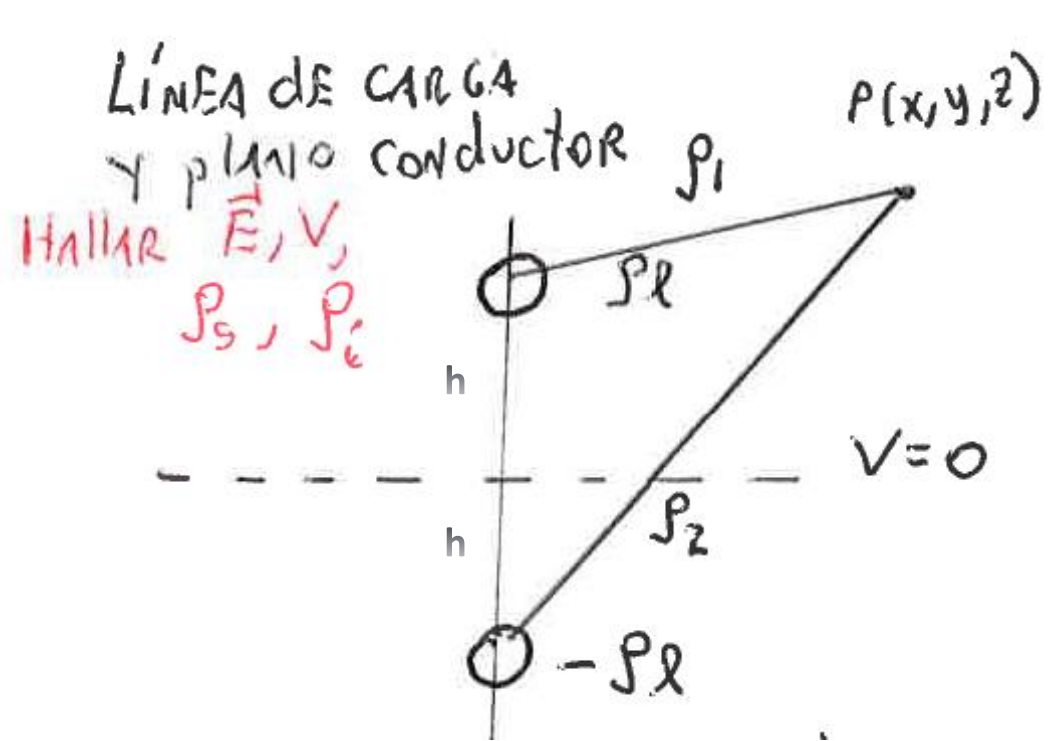 LÍNEA dE CARGA
Y plANO CONductOR
HAllAR E⃗, V,
ρs, ρi
P(x,y,z)
ρ1
ρl
h
V=0
h
ρ2
-ρl